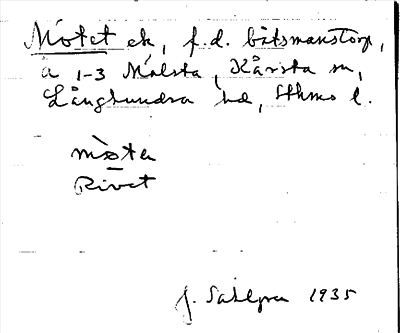 Mótet ek, f.d. båtsmanstorp,
å 1-3 Målsta, Kårsta sn,
Långhundra hd, Sthms l.
mòten
Rivet
J. Sahlgren 1935